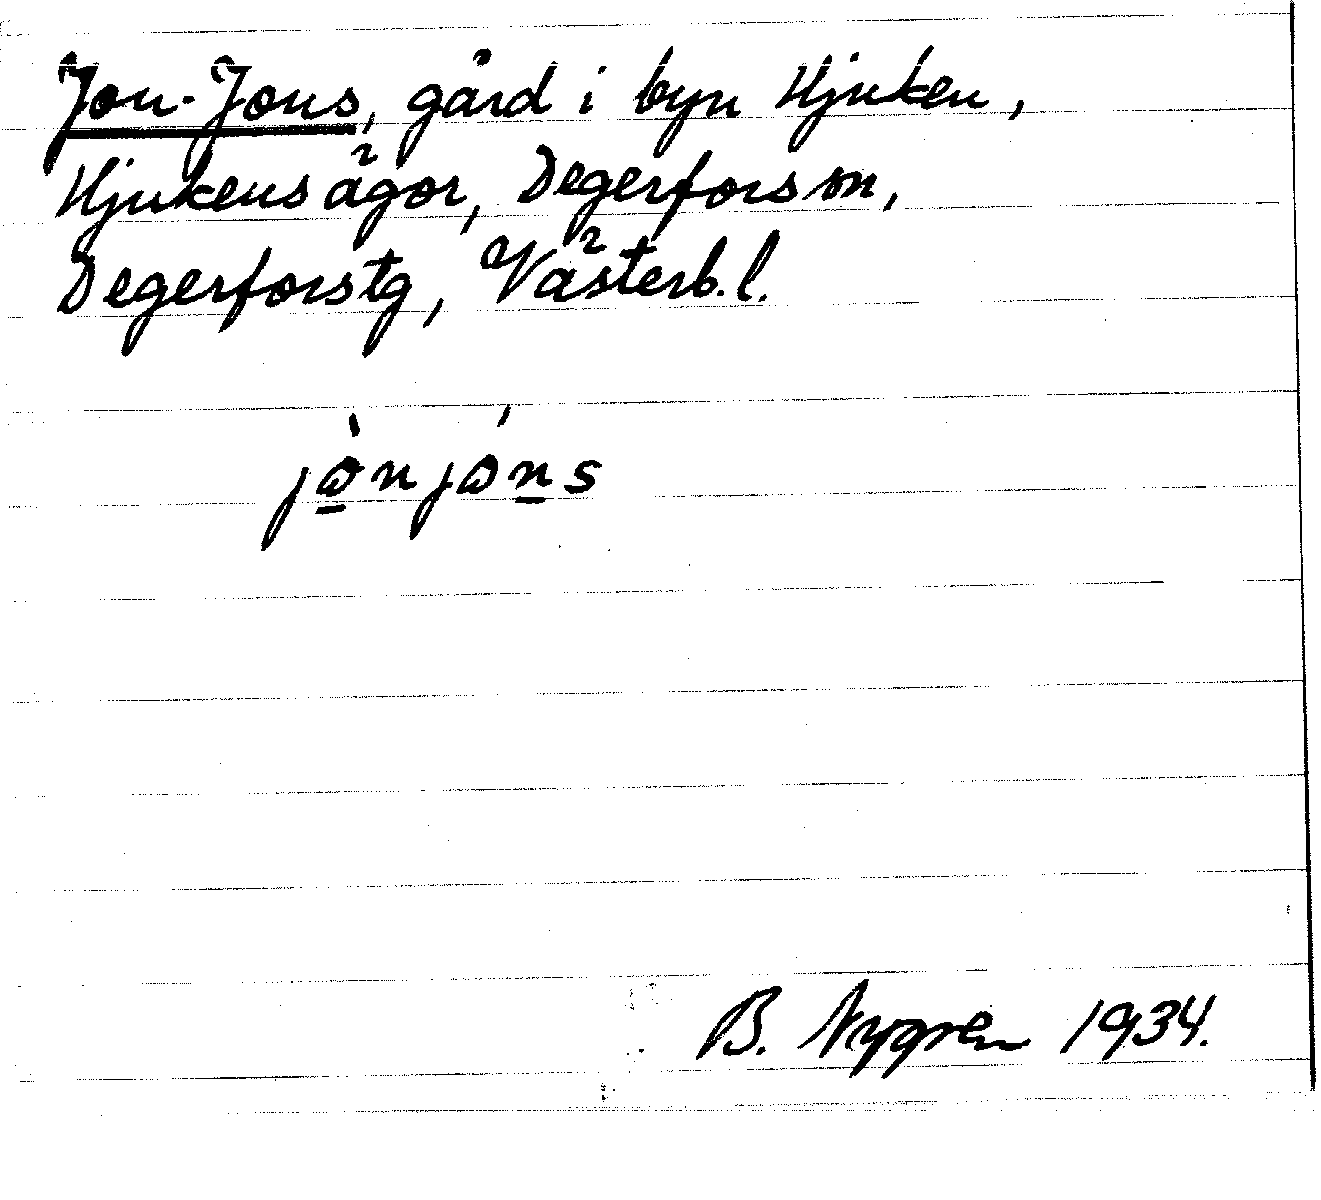 Jon-Jons, gård i byn Hjuken,
Hjukensägor, Degerforssn,
Degerforstg, Västerb.l.
jò̱njóṉs
B. Nygren 1934.